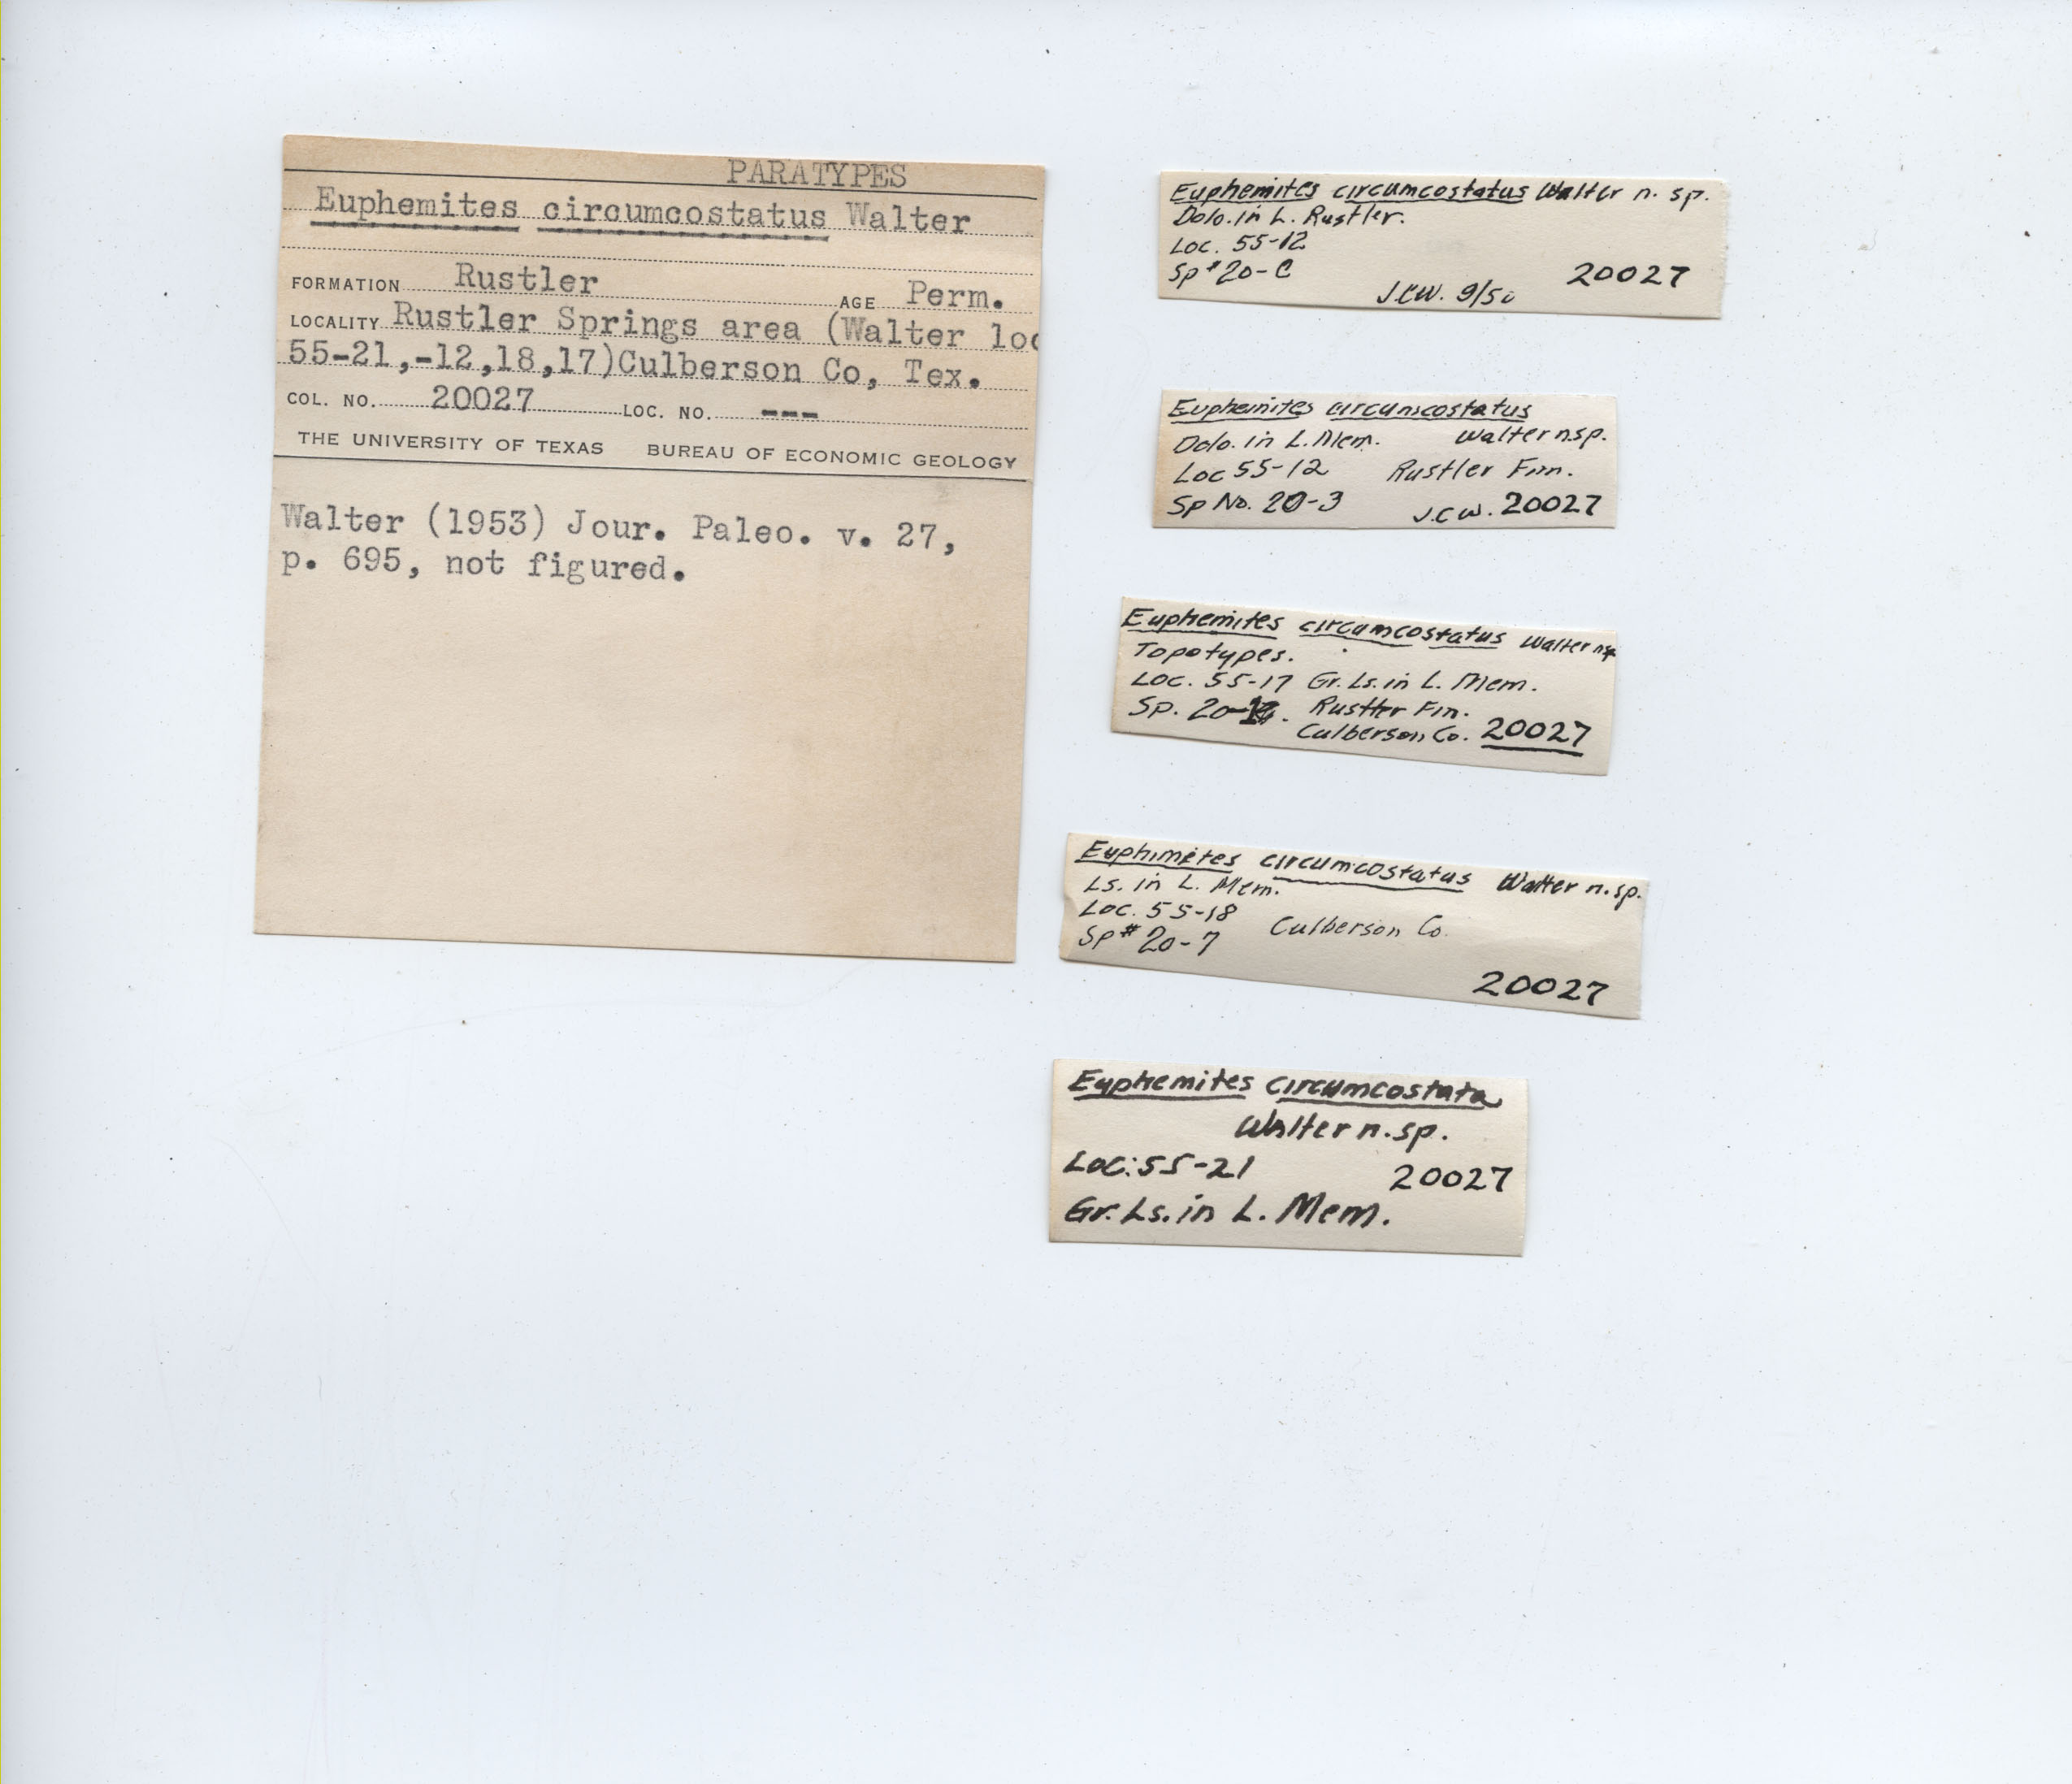 PARATYPES
Euphemites circumcostatus Walter
FORMATION Rustler AGE Perm.
LOCALITY Rustler Springs area (Walter loc
55-21,-12,18,17)Culberson Co, Tex.
COL. NO. 20027 LOC. NO. ---
THE UNIVERSITY OF TEXAS BUREAU OF ECONOMIC GEOLOGY
Walter (1953) Jour. Paleo. v. 27,
p. 695, not figured.
Euphemites circumcostatus Walter n. sp.
Dolo. in L. Rustler.
Loc. 55-12
Sp # 20-C 20027
J.C.W. 9/50
Euphemites circumcostatus
Dolo. in L. Mem. Walter n.sp.
Loc 55-12 Rustler Fm.
Sp No. 20-3 J.C.W. 20027
Euphemites circumcostatus Walter nsp
Topotypes.
Loc. 55-17 Gr. Ls. in L. Mem.
Sp. 20- Rustler Fm.
Culberson Co. 20027
Euphimites circumcostatus Walter n. sp.
Ls. in L. Mem.
Loc. 55-18 Culberson Co.
Sp # 20-7
20027
Euphemites circumcostata
Walter n. sp.
Loc: 55-21 20027
Gr. Ls. in L. Mem.